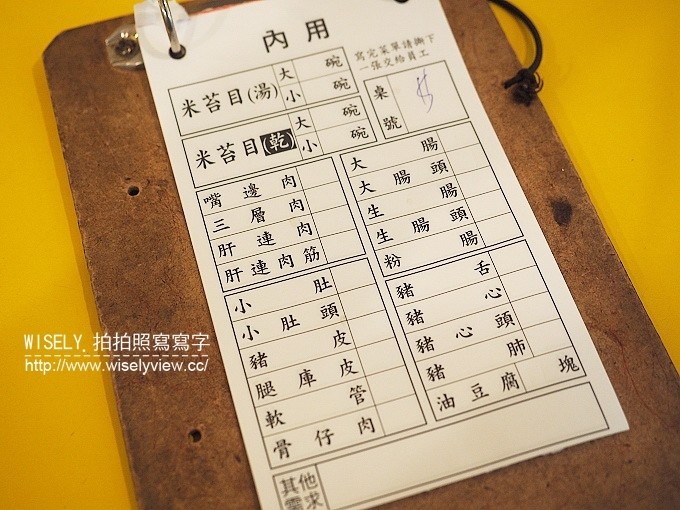 內用
寫完菜單請撕下
一張交給員工
米苔目(湯) 大 碗
小 碗
桌號
米苔目(乾) 大 碗
小 碗
嘴邊肉
三層肉
肝連肉
肝連肉筋
大腸
大腸頭
生腸
生腸頭
粉腸
小肚
小肚頭
豬皮
腿庫皮
軟管
骨仔肉
豬舌
豬心
豬心頭
豬肺
油豆腐 塊
其他
需求
WISELY 拍拍照寫寫字
http://www.wiselyview.cc/